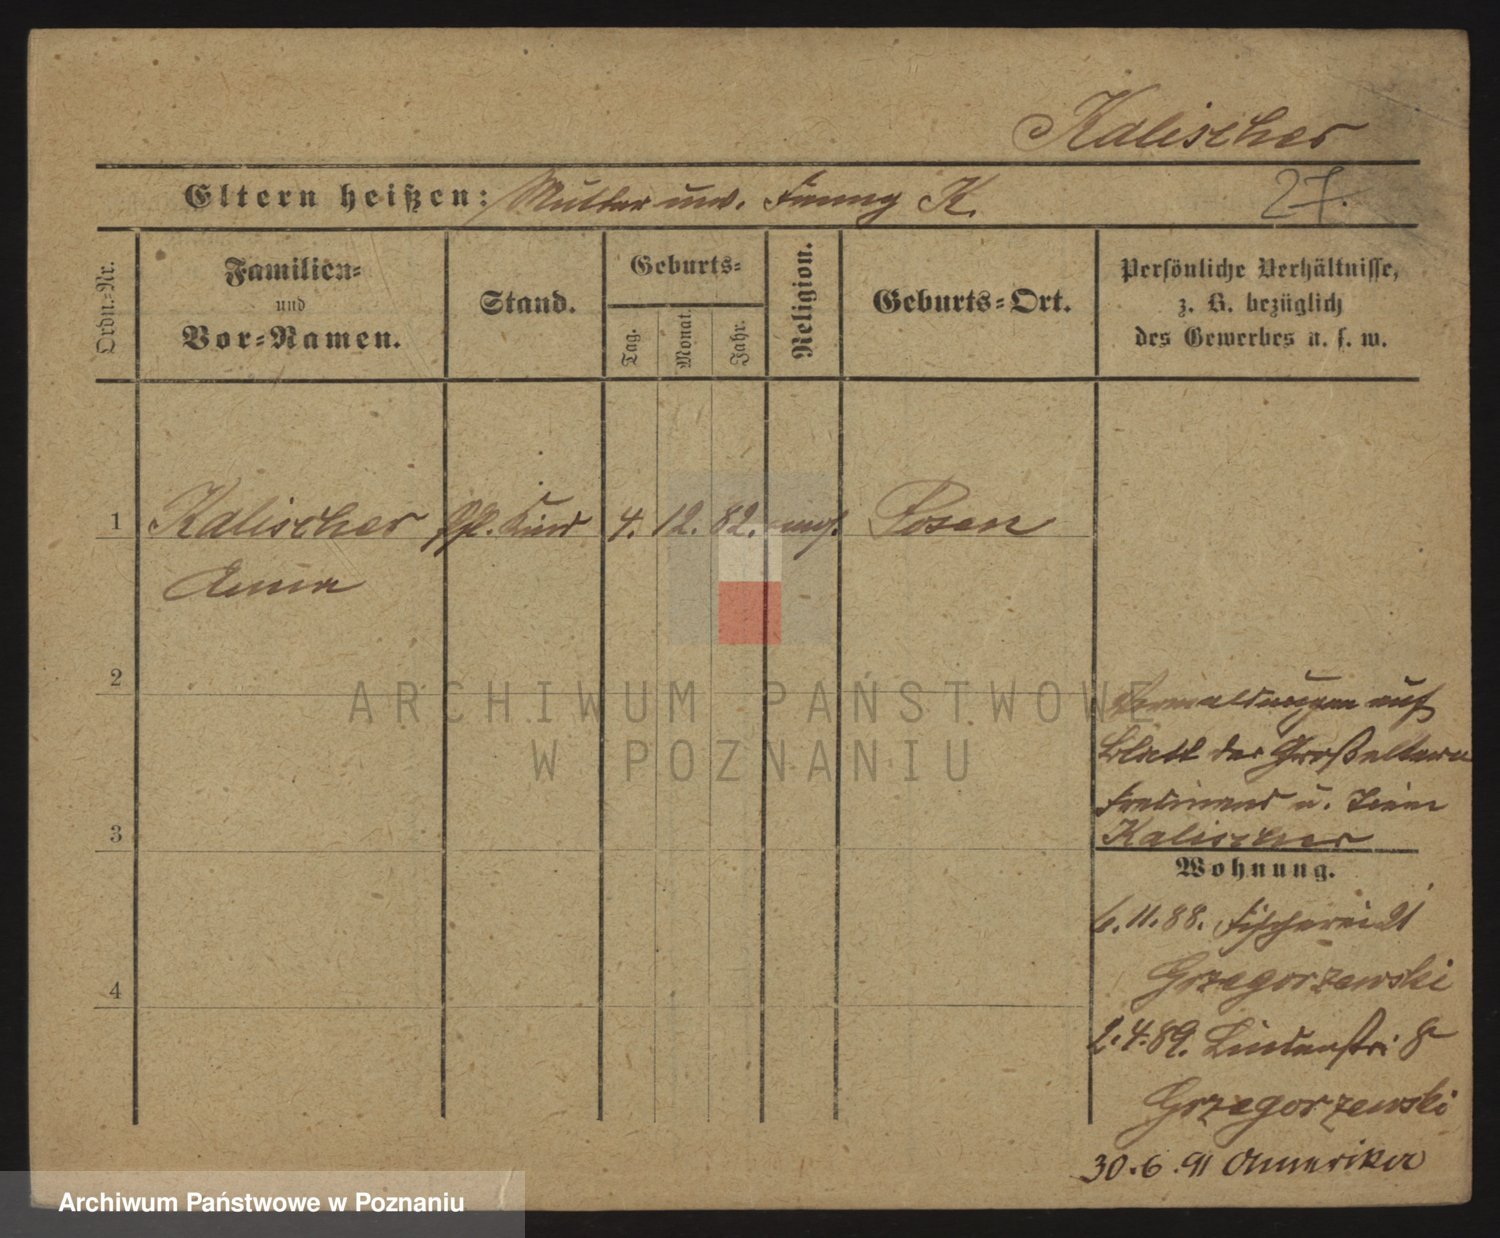 Kalischer
Eltern heißen: Mutter unv. Fanny K.
27.
Ordn.-Nr.
Familien-
und
Vor-Namen.
Stand.
Geburts-
Tag.
Monat.
Jahr.
Religion.
Geburts-Ort.
Persönliche Verhältnisse,
z. B. bezüglich
des Gewerbes u. s. w.
1 Kalischer Pfl. Kind 4. 12. 82. Posen
Anna
2
3
4
auf
Blatt der Großeltern
Ferdinand u.
Kalischer
Wohnung.
6.11.88. Fischerei 21
Grzegorzewski
2.4.89. Lindenstr. 8
Grzegorzewski
30.6.91 Amerika
ARCHIWUM PAŃSTWOWE
W POZNANIU
Archiwum Państwowe w Poznaniu